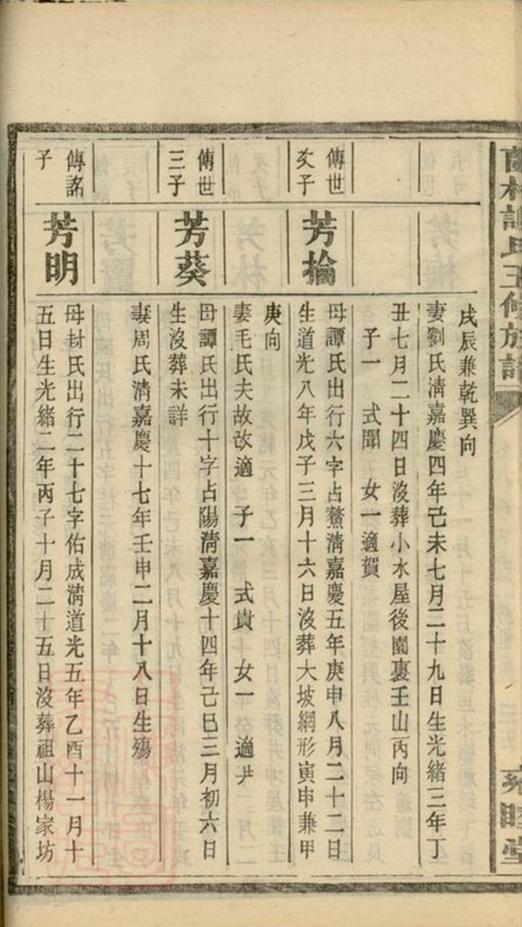 戌辰兼乾巽向
妻劉氏淸嘉慶四年己未七月二十九日生光緒三年丁
丑七月二十四日沒葬小水屋後園裏壬山丙向
子一 式聞 女一適賀
傳世
次子
芳掄
母譚氏出行六字占鰲淸嘉慶五年庚申八月二十二日
生道光八年戊子三月十六日沒葬大坡網形寅申兼甲
庚向
妻毛氏夫故改適 子一 式貴 女一 適尹
傳世
三子
芳葵
母譚氏出行十字占陽淸嘉慶十四年己巳三月初六日
生沒葬未詳
妻周氏淸嘉慶十七年壬申二月十八日生殤
傳銘
子
芳明
母封氏出行二十七字佑成淸道光五年乙酉十一月十
五日生光緒二年丙子十月二十五日沒葬祖山楊家坊